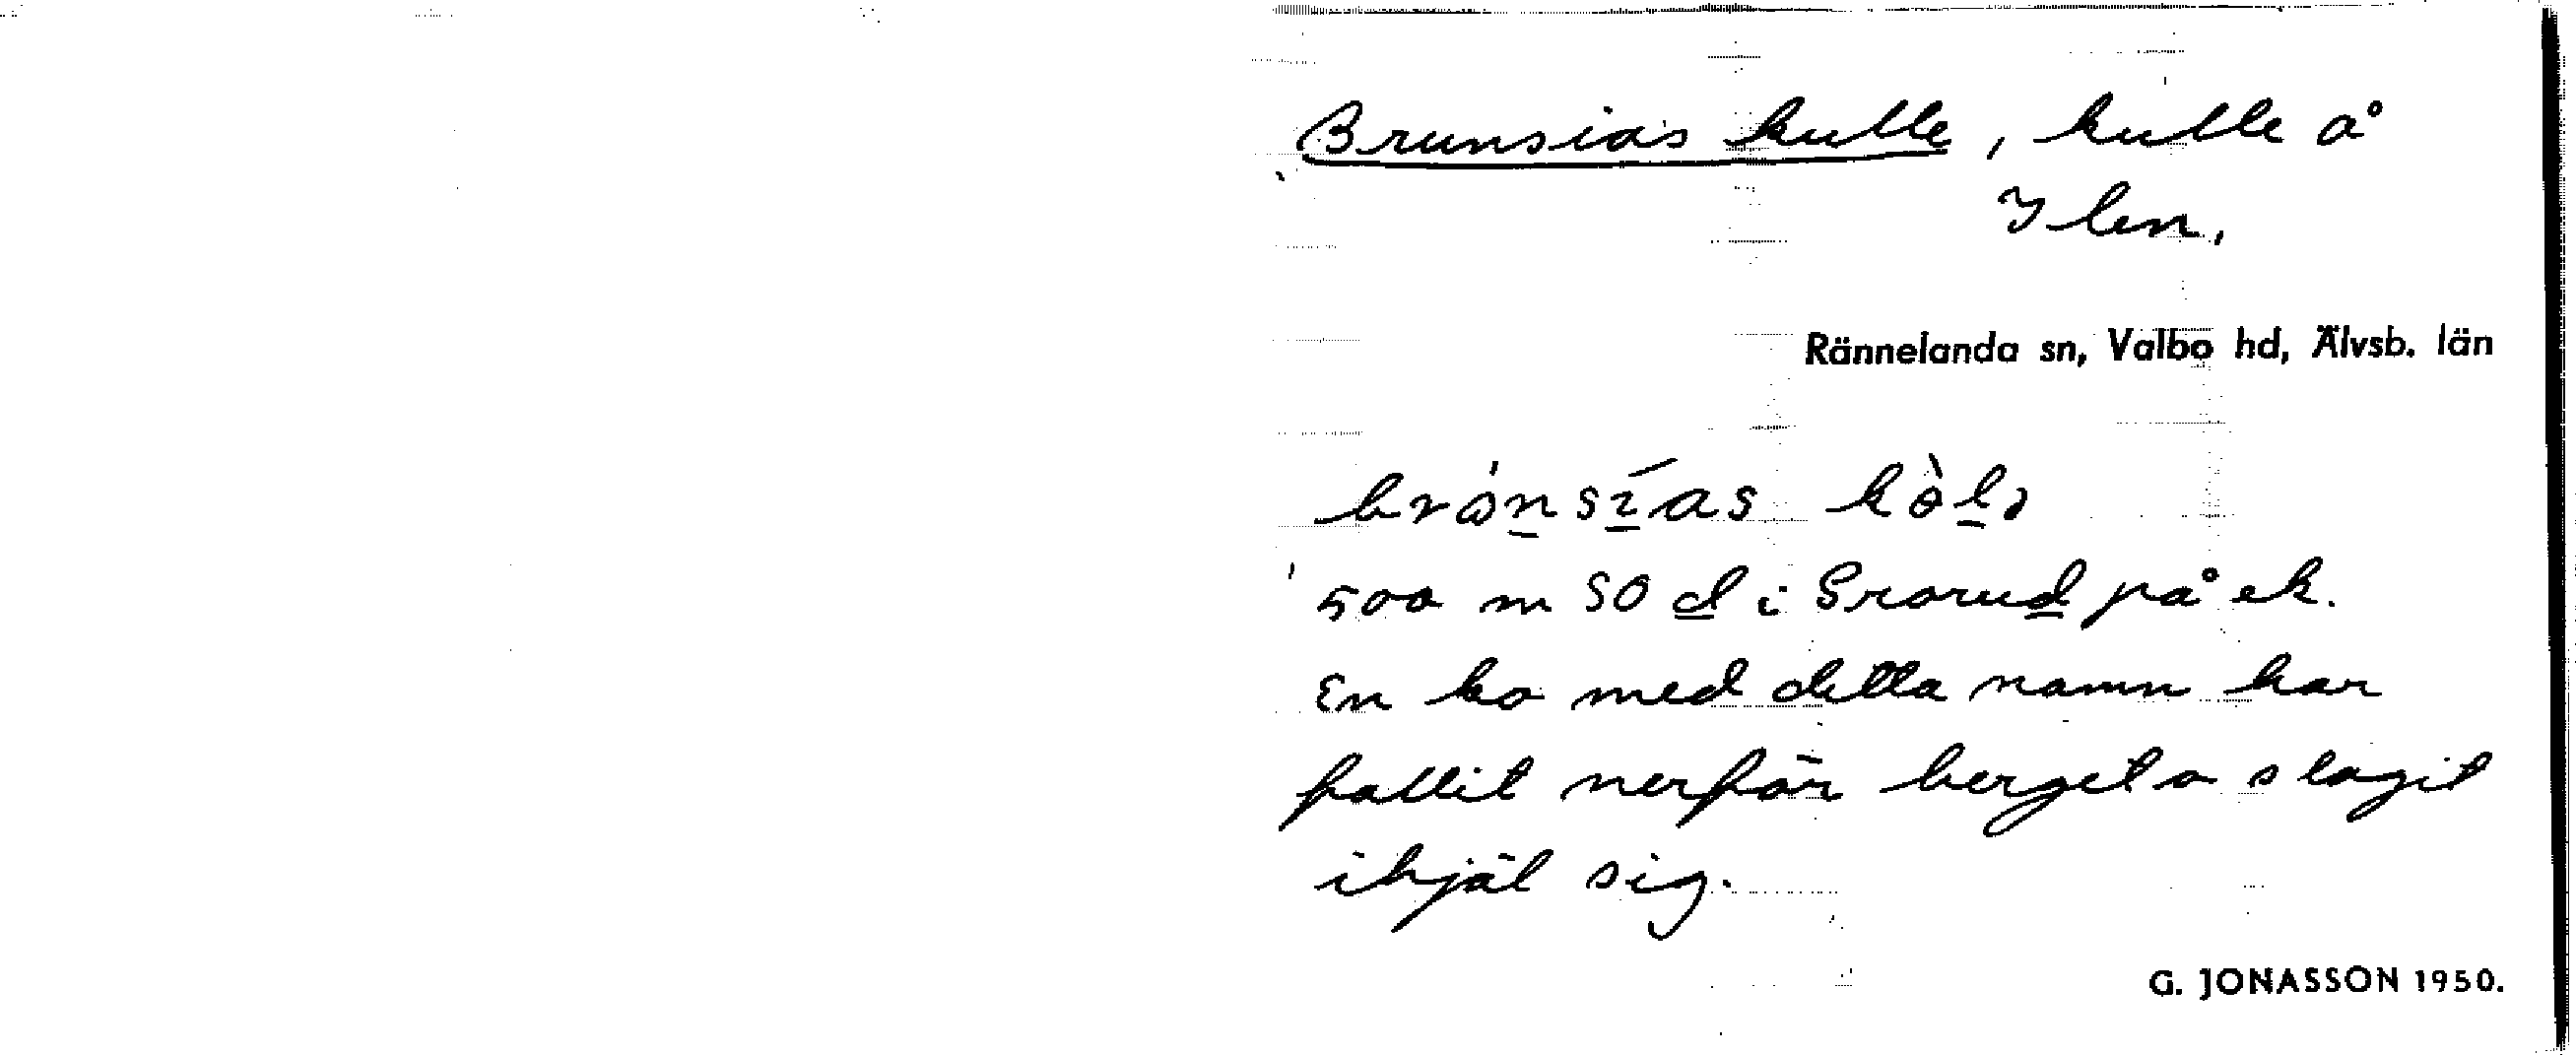 Brunsias kulle, kulle å
Ylen.
Rännelanda sn, Valbo hd, Älvsb. län
500 m SO d i Srorud på ek.
En ko med detta namn har
fallit nerför berget o slagit
ihjäl sig.
G. JONASSON 1950.